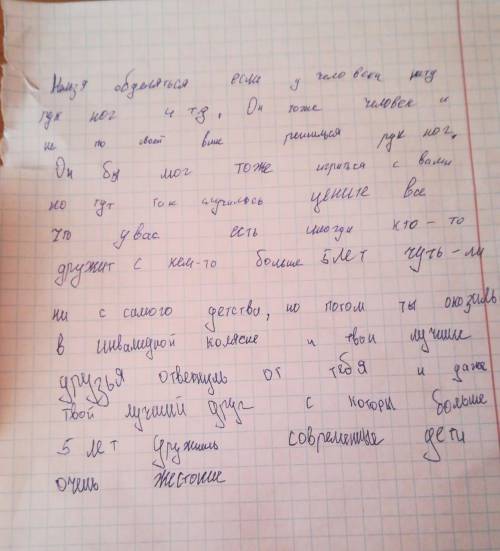 Нельзя обделяться если у человека нету
рук ног и тд. Он тоже человек и
не по своей вине решился рук ног.
Он бы мог тоже играться с вами
но тут так случилось цените все
что у вас есть иногда кто-то
дружит с кем-то больше 5 лет чуть-ли
ни с самого детства, но потом ты оказиль
в инвалидной коляске и твои лучшие
друзья отвекнуль от тебя и даже
твой лучший друг с которы больше
5 лет дружиль современные дети
очень жестокие